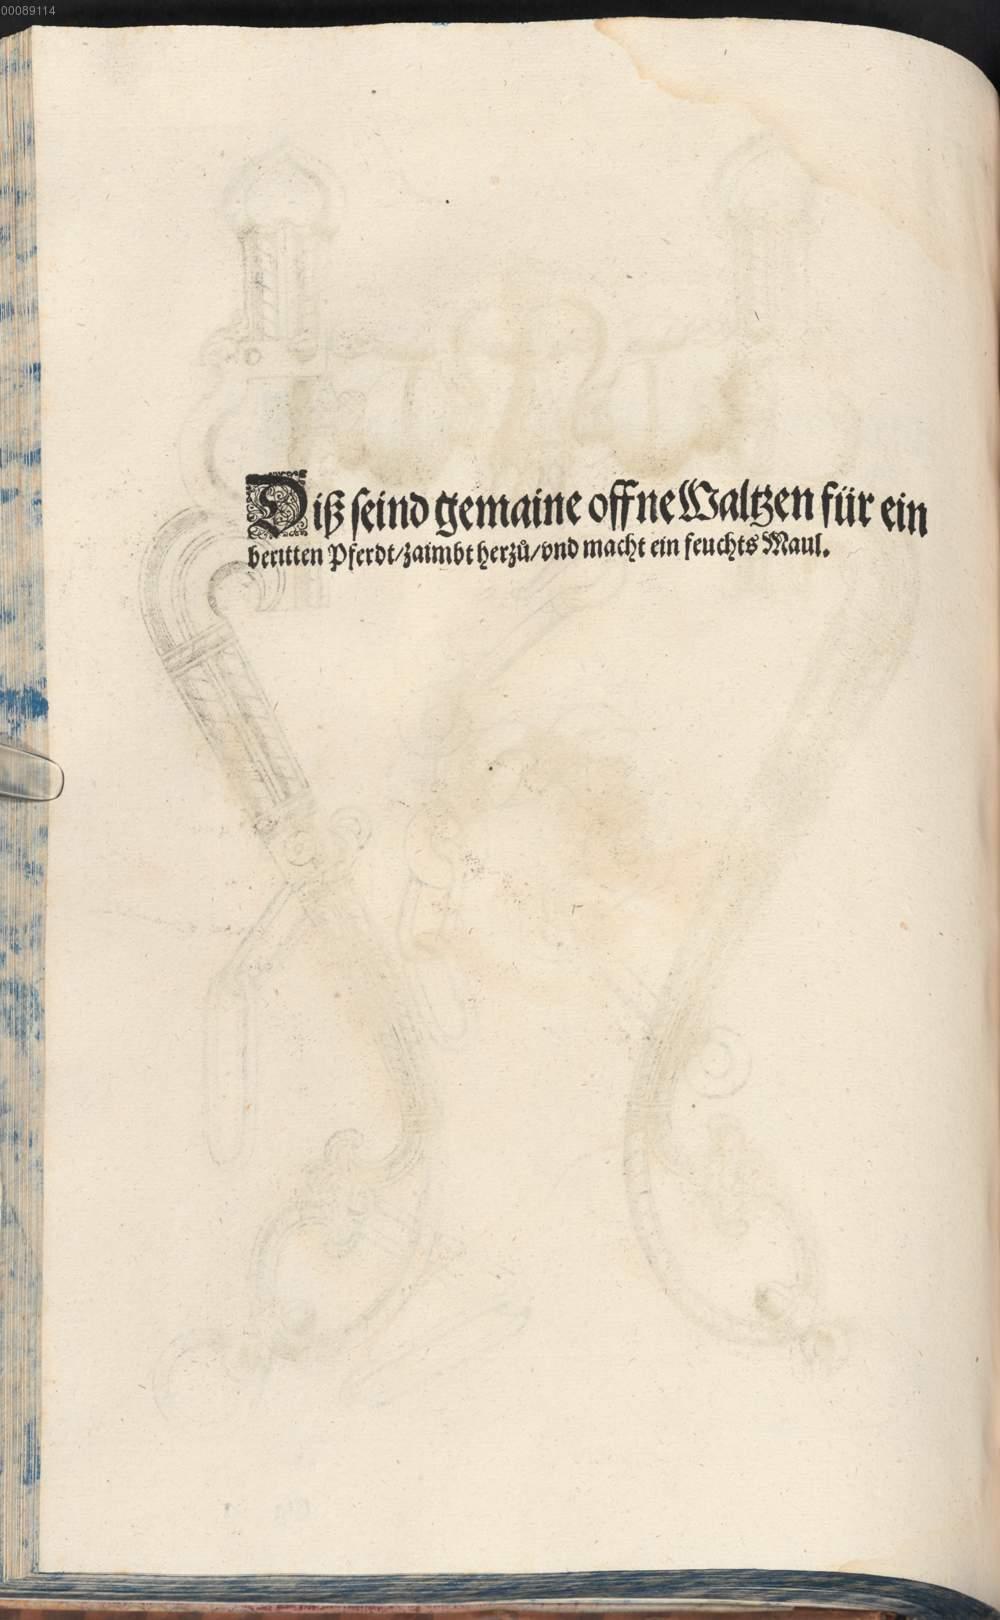 00089114
Diß seind gemaine offne Waltzen für ein
beritten Pferdt/zaimbt herzů/vnd macht ein feuchts Maul.